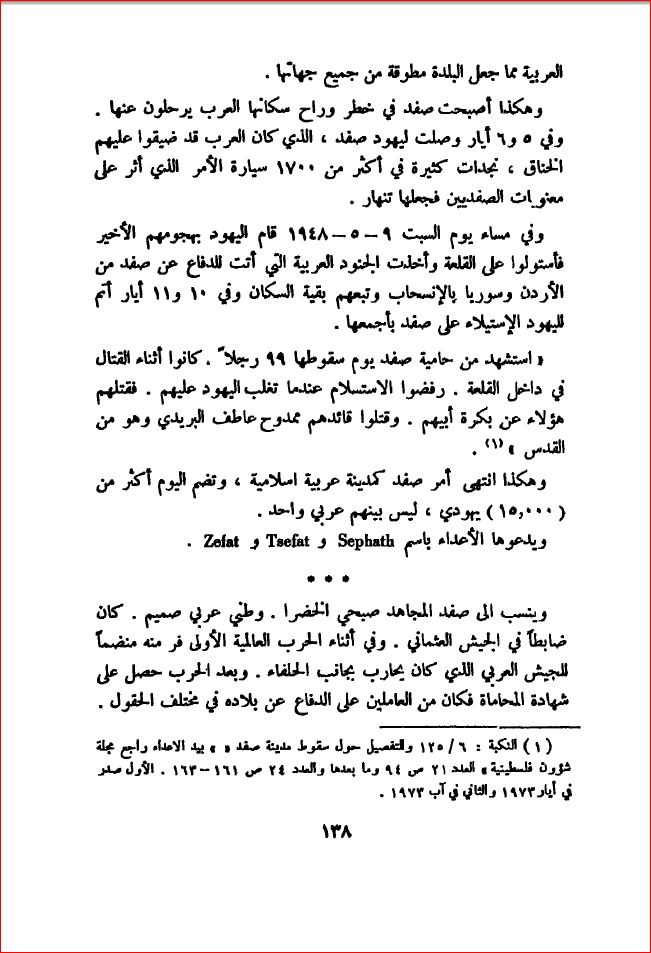 العربية مما جعل البلدة مطوقة من جميع جهاتها .
وهكذا أصبحت صفد في خطر وراح سكانها العرب يرحلون عنها .
وفي ٥ و٦ أيار وصلت ليهود صفد ، الذي كان العرب قد ضيقوا عليهم
الخناق ، نجدات كثيرة في أكثر من ١٧٠٠ سيارة الأمر الذي أثر على
معنويات الصفديين فجعلها تنهار .
وفي مساء يوم السبت ٩ – ٥ – ١٩٤٨ قام اليهود بهجومهم الأخير
فأستولوا على القلعة وأخذت الجنود العربية التي أتت للدفاع عن صفد من
الأردن وسوريا بالإنسحاب وتبعهم بقية السكان وفي ١٠ و١١ أيار أتم
لليهود الإستيلاء على صفد بأجمعها .
« استشهد من حامية صفد يوم سقوطها ٩٩ رجلاً . كانوا أثناء القتال
في داخل القلعة . رفضوا الاستسلام عندما تغلب اليهود عليهم . فقتلهم
هؤلاء عن بكرة أبيهم . وقتلوا قائدهم ممدوح عاطف البريدي وهو من
القدس » (١) .
وهكذا انتهى أمر صفد كمدينة عربية اسلامية ، وتضم اليوم أكثر من
( ١٥,٠٠٠ ) يهودي ، ليس بينهم عربي واحد .
ويدعوها الأعداء باسم Sephath و Tsefat و Zefat .
* * *
وينسب الى صفد المجاهد صبحي الخضرا . وطني عربي صميم . كان
ضابطاً في الجيش العثماني . وفي أثناء الحرب العالمية الأولى فر منه منضماً
للجيش العربي الذي كان يحارب بجانب الحلفاء . وبعد الحرب حصل على
شهادة المحاماة فكان من العاملين على الدفاع عن بلاده في مختلف الحقول .
( ١ ) النكبة : ٦ / ١٢٥ والتفصيل حول سقوط مدينة صفد « » بيد الاعداء راجع مجلة
شؤون فلسطينية » العدد ٢١ ص ٩٤ وما بعدها والعدد ٢٤ ص ١٦١ – ١٦٣ . الأول صدر
في أيار ١٩٧٣ والثاني في آب ١٩٧٣ .
١٣٨